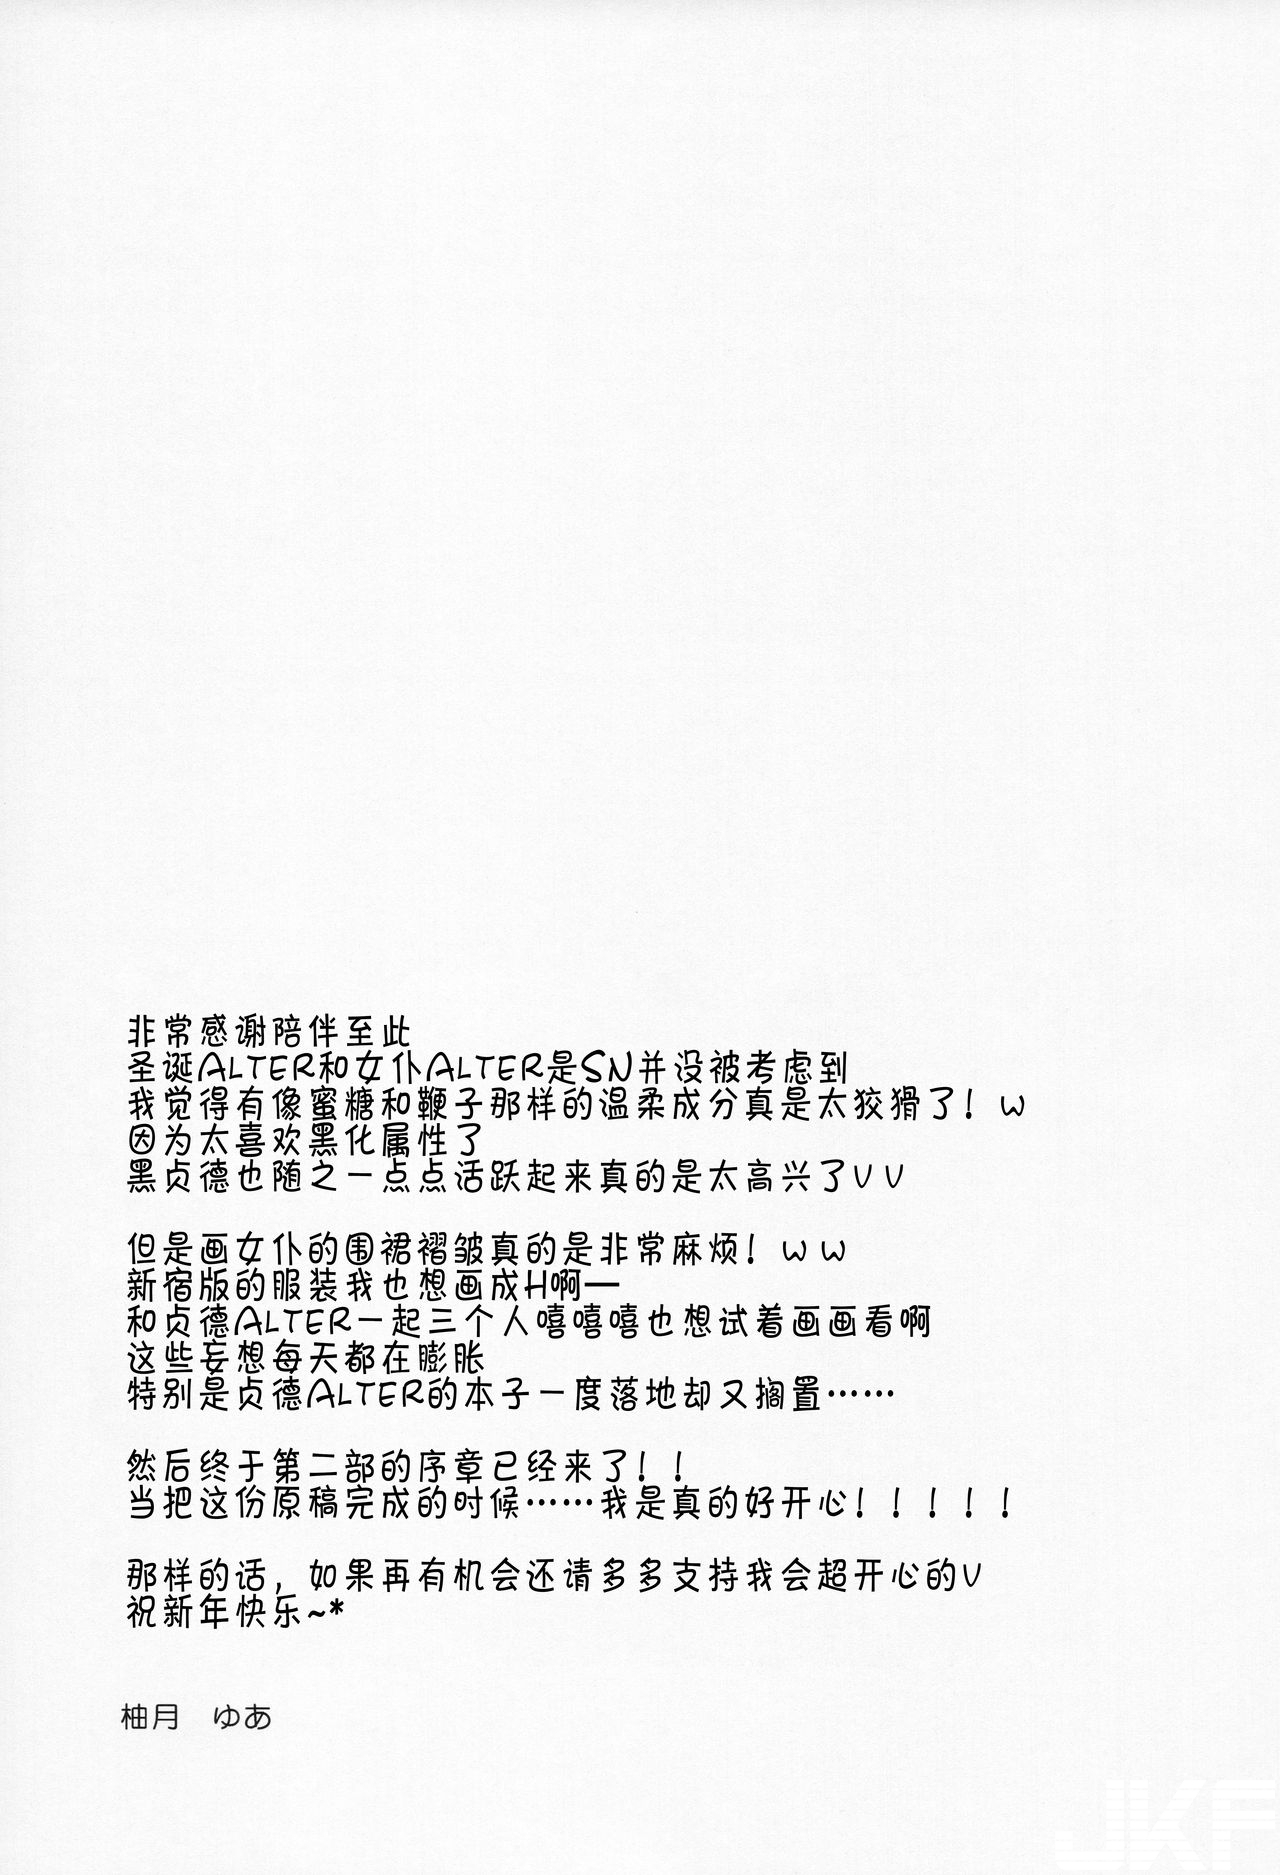 非常感谢陪伴至此
圣诞ALTER和女仆ALTER是SN并没被考虑到
我觉得有像蜜糖和鞭子那样的温柔成分真是太狡猾了！W
因为太喜欢黑化属性了
黑贞德也随之一点点活跃起来真的是太高兴了VV
但是画女仆的围裙褶皱真的是非常麻烦！WW
新宿版的服装我也想画成H啊—
和贞德ALTER一起三个人嘻嘻嘻也想试着画画看啊
这些妄想每天都在膨胀
特别是贞德ALTER的本子一度落地却又搁置……
然后终于第二部的序章已经来了！！
当把这份原稿完成的时候……我是真的好开心！！！！！
那样的话，如果再有机会还请多多支持我会超开心的V
祝新年快乐~*
柚月　ゆあ
JKF